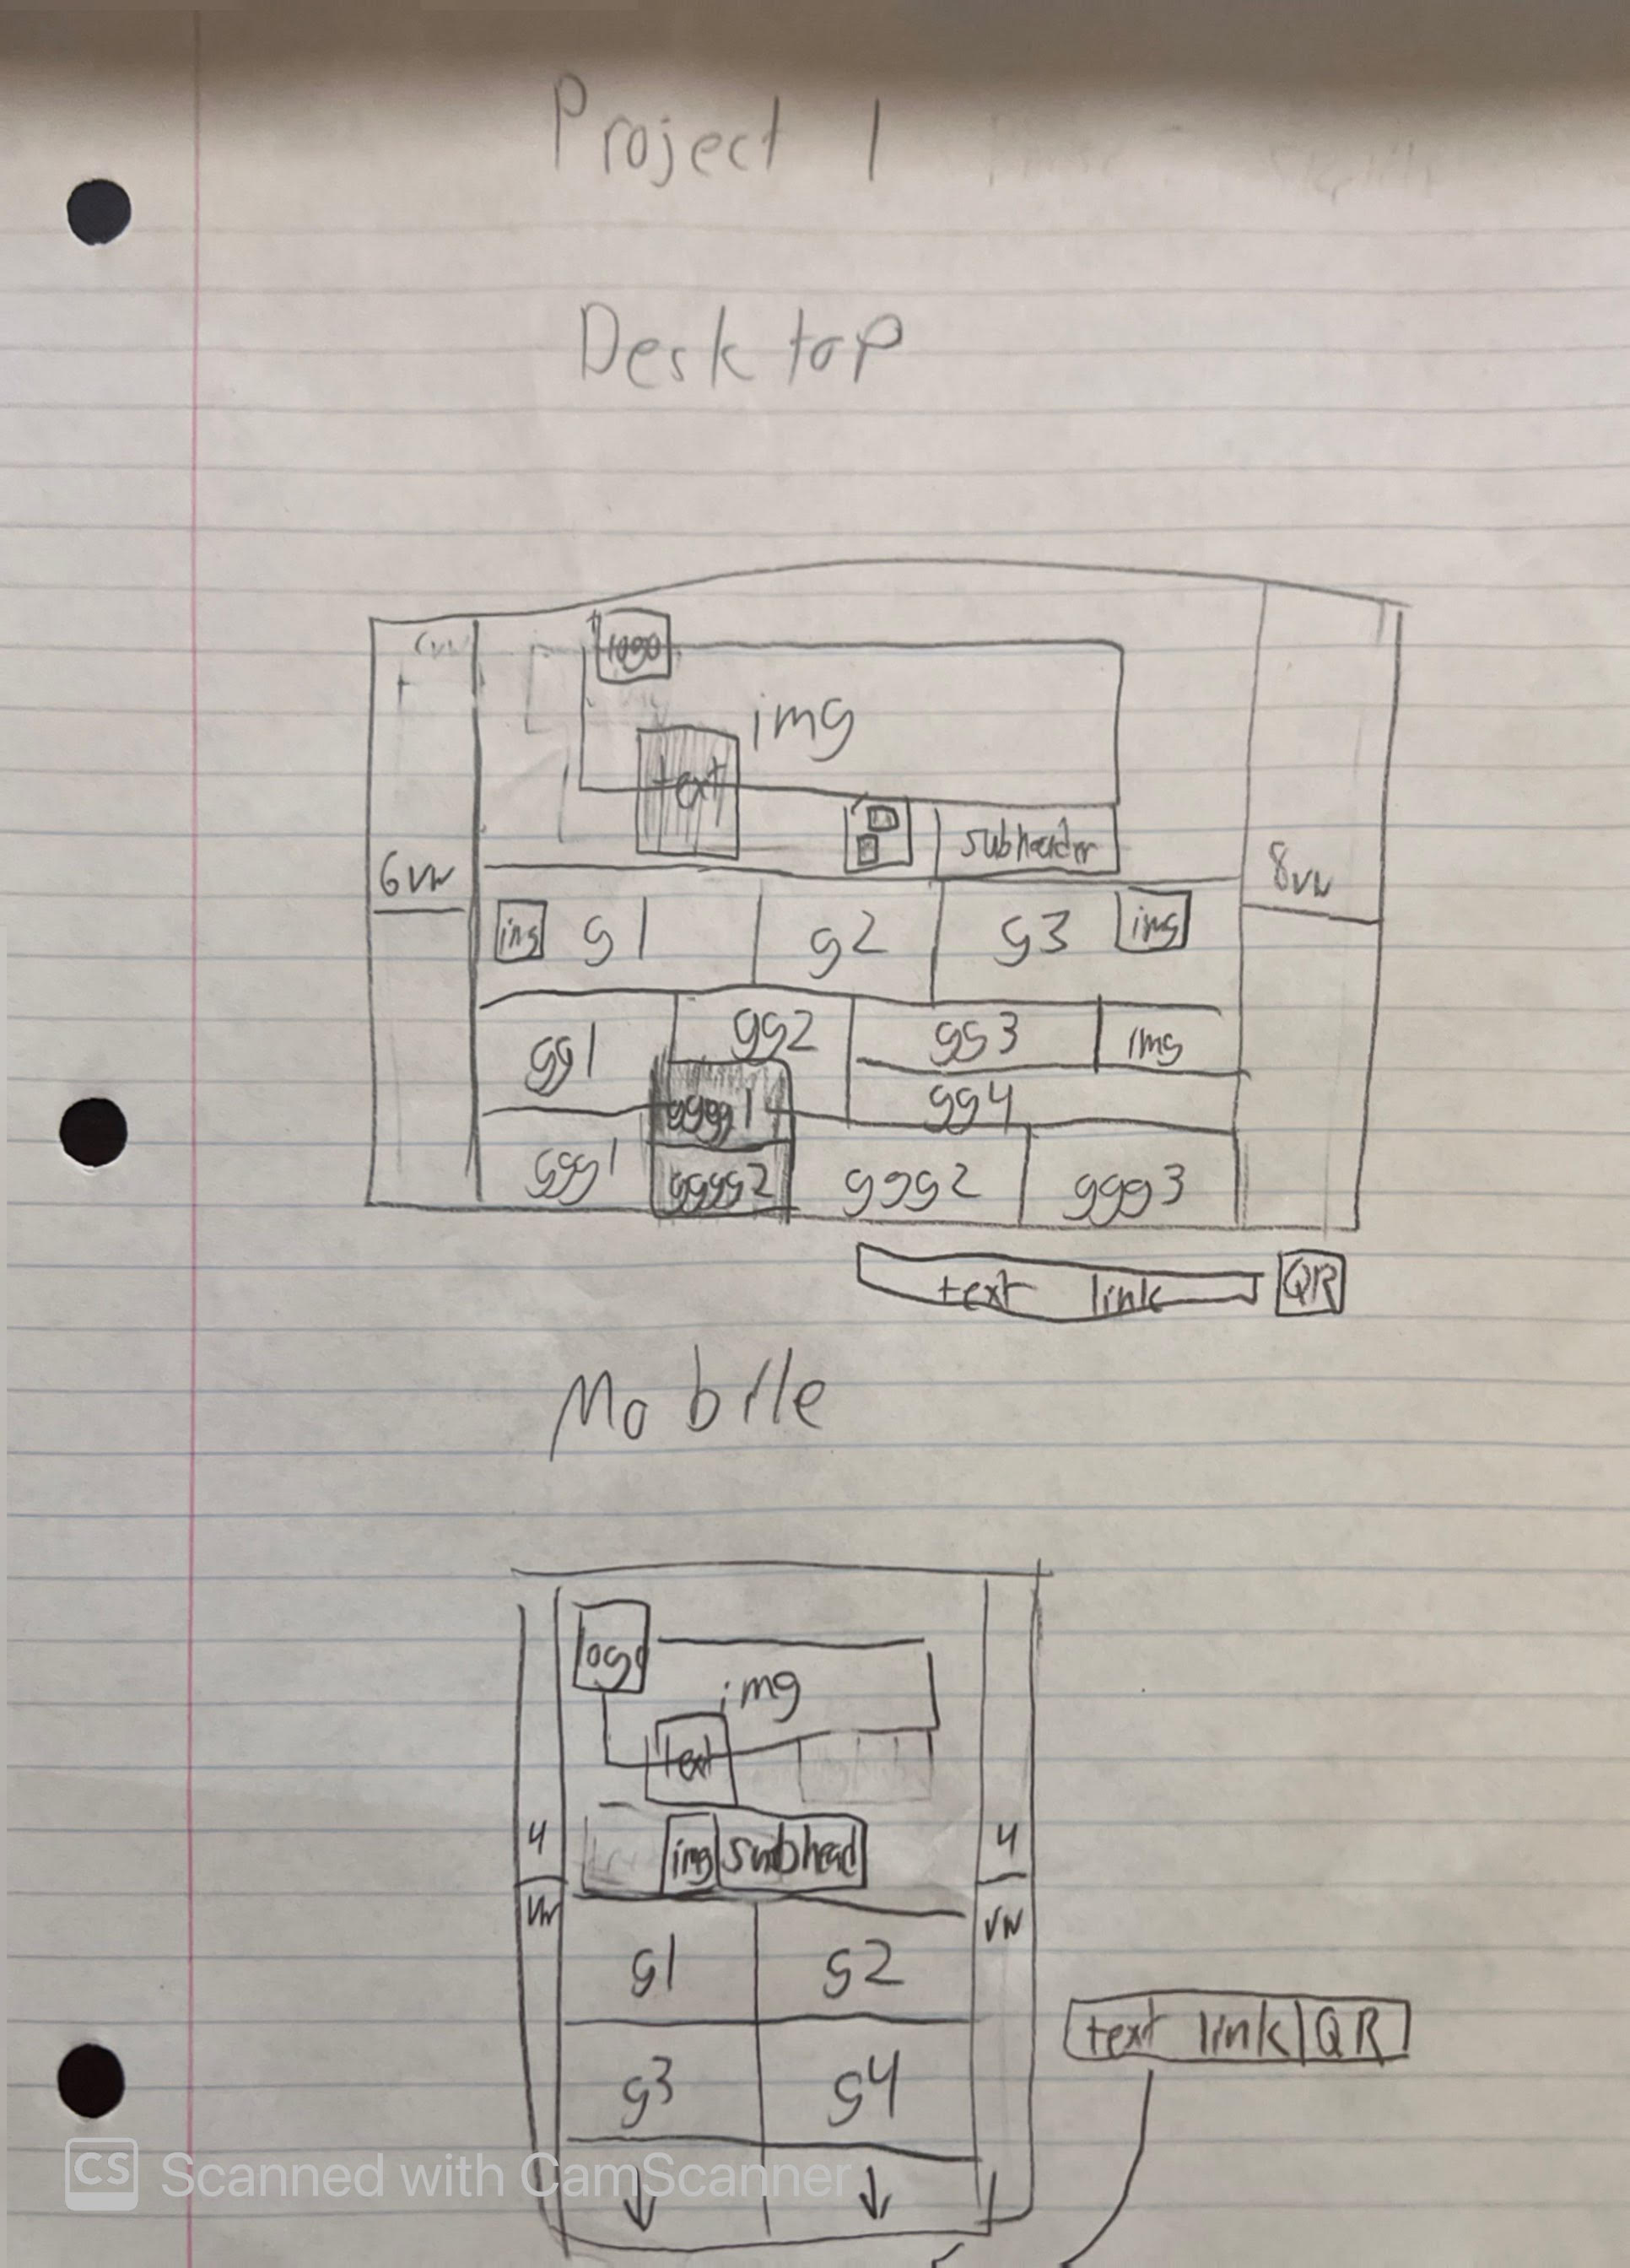 Project 1
Desktop
logo
img
text
subheader
6vw
8vw
img g1 g2 g3 img
gg1 gg2 gg3 img
gg4
gggg1
ggg1 gggg2 ggg2 ggg3
text link QR
Mobile
logo
img
text
img subhead
4 vw
4 vw
g1 g2
g3 g4
text link QR
CS Scanned with CamScanner